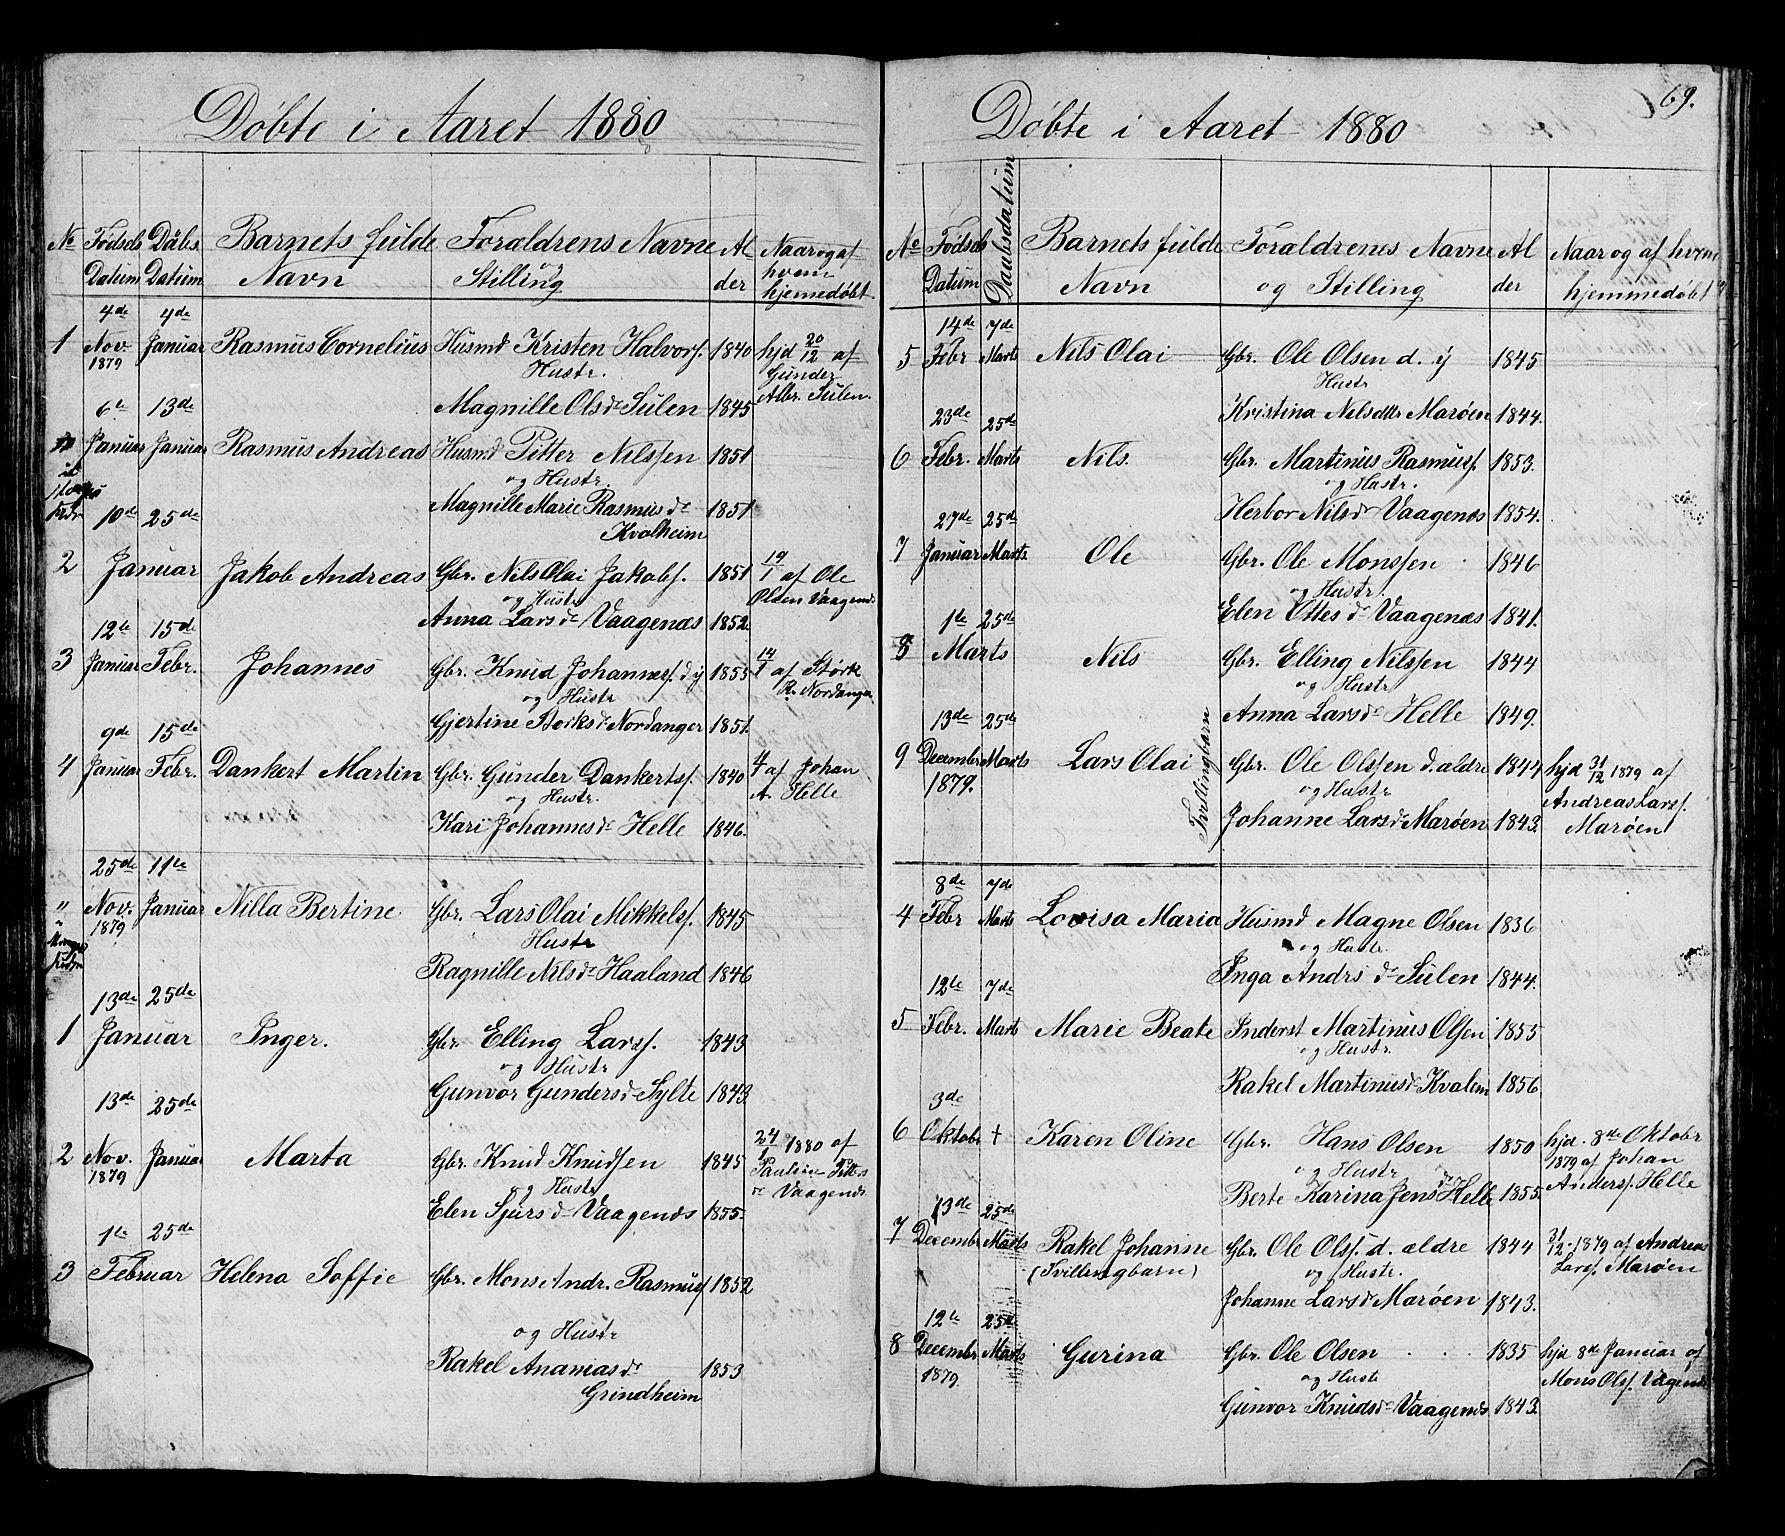 Døbte i Aaret 1880
No Fødsels Datum Daabs Datum Barnets fulde Navn Forældrens Navne og Stilling Alder Naar og af hvem hjemedøbt
1 4de Nov 1879 4de Januar Rasmus Cornelius Husmd Kristen Halvors. 1840 hjd 20/12 af
Hustr. Gunder
Magnille Olsdr Sulen 1845 Albr. Sulen.
6te Januar 13de Januar Rasmus Andreas Husmd Pitter Nilssen 1851
og Hustr.
Magnille Marie Rasmusdr 1851
Kvalheim
2 10de Januar 25de Jakob Andreas Gbr. Nils Olai Jakobs. 1851 19/1 af Ole
og Hustr Olsen Vaagenæs
Anna Larsdr Vaagenæs 1852.
3 12te Januar 15de Febr. Johannes Gbr. Knud Johanness. d y 1855 14/1 af Størk
og Hustr R. Nordanger
Gjertine Storksdr Nordanger 1851.
4 9de Januar 15de Febr. Dankert Martin Gbr. Gunder Dankerts. 1840 af Johan
og Hustr. A. Helle
Kari Johannesdr Helle 1846.
" 25de Nov. 1879 11te Januar Nilla Bertine Gbr. Lars Olai Mikkels. 1845
Hustr
Ragnille Nilsdr Haaland 1846
1 13de Januar 25de Inger. Gbr. Elling Larss. 1843
og Hustr
Gunvor Gundersdr Sylte 1843
2 13de Nov. 1879 25de Januar Marta Gbr. Knud Knudsen 1845 24/1 1880 af
og Hustr
Elen Sjursdr Vaagenæs 1855. Vaagenæs
3 1te Februar 25de Helena Soffie Gbr. Mons Andr. Rasmuss 1852
og Hustr
Rakel Ananiasdr 1853
Grindheim
69.
Døbte i Aaret 1880
No Fødsels Datum Daabsdatum Barnets fulde Navn Forældrenes Navne og Stilling Alder Naar og af hvem hjemmedøbt
5 14de Febr 7de Marts Nils Olai Gbr. Ole Olsen d. y 1845
Hustr
Kristina Nilsdttr Marøen 1844.
6 23de Febr. 25de Marts Nils. Gbr. Martinus Rasmuss. 1853.
og Hustr.
Herbor Nilsdr Vaagenæs 1854.
7 27de Januar 25de Marts Ole Gbr. Ole Monssen 1846
og Hustr.
Elen Ottesdr Vaagenæs 1841.
8 1te Marts 25de Nils Gbr. Elling Nilssen 1844
og Hustr
Anna Larsdr Helle 1849.
9 13de Decembr 1879. 25de Marts Lars Olai Tvilingbarn Gbr. Ole Olssen d. ældre 1844 hjd 31/12 1879 af
og Hustr Andreas Lars.
Johanne Larsdr Marøen 1843. Marøen
4 8de Febr 7de Marts Lovisa Maria Husmd Magne Olsen 1836
og Hustr.
Inga Andrsdr Sulen 1844.
5 12te Febr. 7de Marts Marie Beate Inderst Martinus Olsen 1855
og Hustr.
Rakel Martinusdr Kvalem 1856
6 3de Oktobr + Karen Oline Gbr. Hans Olsen 1850 hjd. 8de Oktobr
og Hustr 1879 af Johan
Berte Karina Jensdr Helle 1855. Anders. Helle
7 13de Decembr 25de Marts Rakel Johanne Gbr. Ole Ols. d. ældre 1844 31/12 1879 af Andreas
(Tvillingbarn) og Hustr. Lars. Marøen
Johanne Larsdr Marøen 1843.
8 12te Decembr 1879. 25de Marts Gurina Gbr. Ole Olsen 1835 hjd 8de Januar af
og Hustr Mons Ols. Vagenæs
Gunvor Knudsdr Vaagenæs 1843.